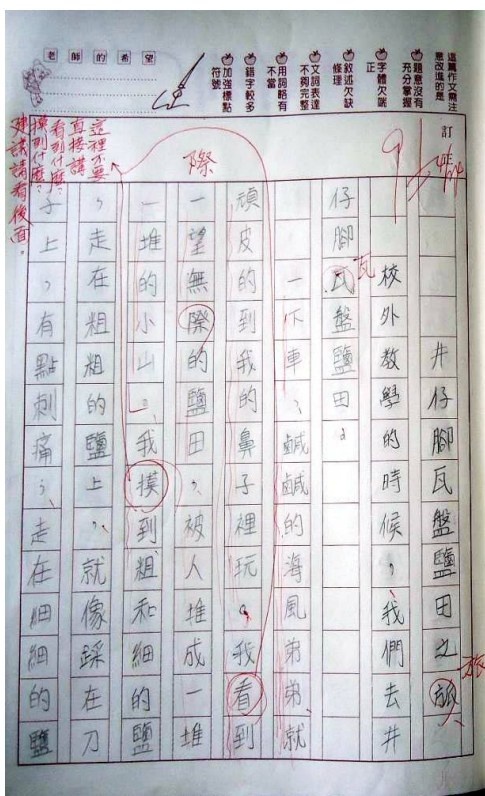 老師的希望
這篇作文需注意改進的是
題意沒有充分掌握
字體欠端正
敘述欠缺條理
文詞表達不夠完整
用詞略有不當
錯字較多
加強標點符號
訂正
井仔腳瓦盤鹽田之旅
旅
校外教學的時候,我們去井
仔腳瓦盤鹽田。
瓦
一下車,鹹鹹的海風弟弟就
頑皮的到我的鼻子裡玩。我看到
一望無際的鹽田,被人堆成一堆
際
一堆的小山。我摸到粗和細的鹽
,走在粗粗的鹽上,就像踩在刀
子上,有點刺痛,走在細細的鹽
這裡不要
直接講
看到什麼?
摸到什麼?
建議請看後面。